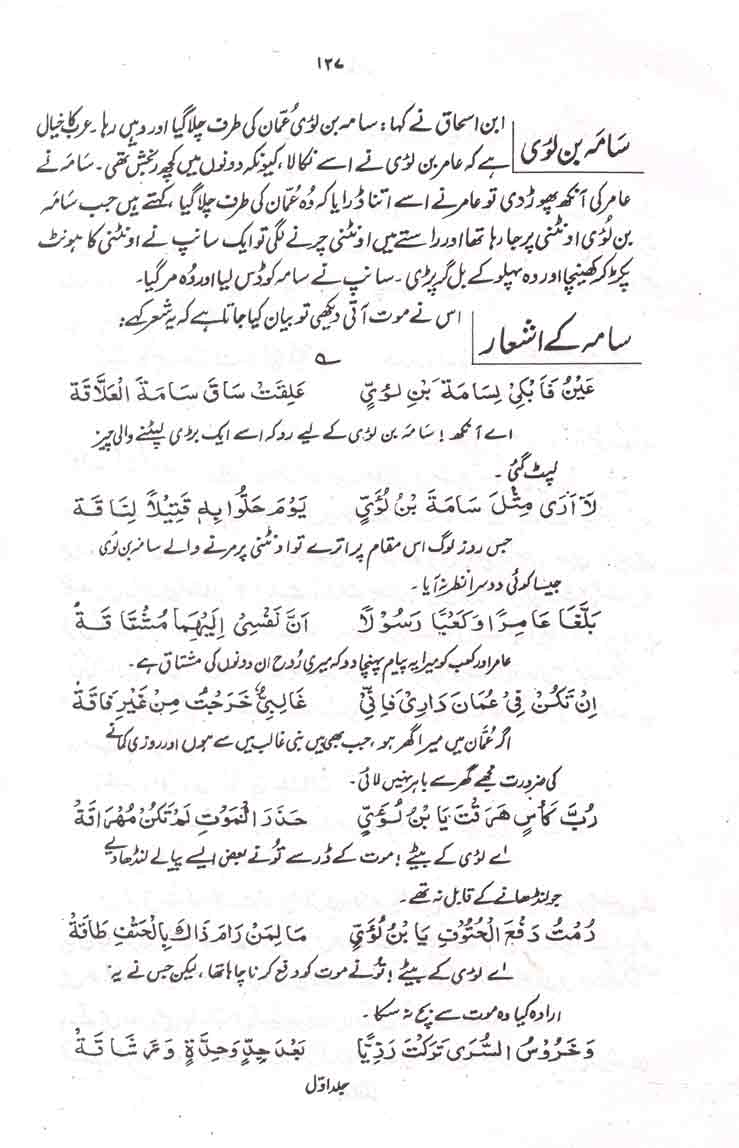 ۱۲۷
سامہ بن لوَی
ابن اسحاق نے کہا: سامہ بن لوَی عُمّان کی طرف چلا گیا اور وہیں رہا۔ عرب کا خیال
ہے کہ عامر بن لوَی نے اسے نکالا، کیونکہ دونوں میں کچھ رنجش تھی۔ سامہ نے
عامر کی آنکھ پھوڑ دی تو عامر نے اسے اتنا ڈرایا کہ وُہ عُمّان کی طرف چلا گیا، کہتے ہیں جب سَامہ
بن لُوَی اونٹنی پر جا رہا تھا اور راستے میں اونٹنی چرنے لگی تو ایک سانپ نے اونٹنی کا ہونٹ
پکڑ کر کھینچا اور وہ پہلو کے بل گر پڑی۔ سانپ نے سامہ کو ڈس لیا اور وُہ مر گیا۔
سامہ کے اشعار
اس نے موت آتی دیکھی تو بیان کیا جاتا ہے کہ یہ شعر کہے:
عَيْنُ فَابْكِيْ لِسَامَةَ بْنِ لُؤَيٍّ عَلِقَتْ سَاقَ سَامَةَ الْعَلَّاقَةْ
اے آنکھ! سَامہ بن لوَی کے لیے رو کہ اسے ایک بڑی لپٹنے والی چیز
لپٹ گئی۔
لَا أَرَى مِثْلَ سَامَةَ بْنُ لُؤَيٍّ يَوْمَ حَلُّوا بِهٖ قَتِيْلًا لِنَاقَةْ
جس روز لوگ اس مقام پر اترے تو اونٹنی پر مرنے والے سامہ بن لُوَی
جیسا کوئی دوسرا نظر نہ آیا۔
بَلِّغَا عَامِرًا وَكَعْبًا رَسُوْلًا اَنَّ نَفْسِيْ اِلَيْهِمَا مُشْتَاقَةْ
عامر اور کعب کو میرا یہ پیام پہنچا دو کہ میری رُوح ان دونوں کی مشتاق ہے۔
اِنْ تَكُنْ فِيْ عُمَانَ دَارِيْ فَاِنِّيْ غَالِبِيٌّ خَرَجْتُ مِنْ غَيْرِ فَاقَةْ
اگر عُمّان میں میرا گھر ہو، جب بھی میں بنی غالب میں سے ہوں اور روزی کمانے
کی ضرورت مجھے گھر سے باہر نہیں لائی۔
رُبَّ كَأْسٍ هَرَقْتَ يَا بْنُ لُؤَيٍّ حَذَرَ الْمَوْتِ لَمْ تَكُنْ مُهْرَاقَةْ
اے لوَی کے بیٹے! موت کے ڈر سے تُو نے بعض ایسے پیالے لنڈھا دیے
جو لنڈھانے کے قابل نہ تھے۔
رُمْتُ دَفْعَ الْحُتُوْتِ يَا بْنُ لُؤَيٍّ مَا لِمَنْ رَامَ ذَاكَ بِالْحَتْفِ طَاقَةْ
اے لوَی کے بیٹے! تُو نے موت کو دفع کرنا چاہا تھا، لیکن جس نے یہ
ارادہ کیا وہ موت سے بچ نہ سکا۔
وَخَرُوْسُ السُّرَى تَرَكْتَ رَدِيًّا بَعْدَ جِدٍّ وَحِدَّةٍ وَرَشَاقَةْ
جلد اوّل